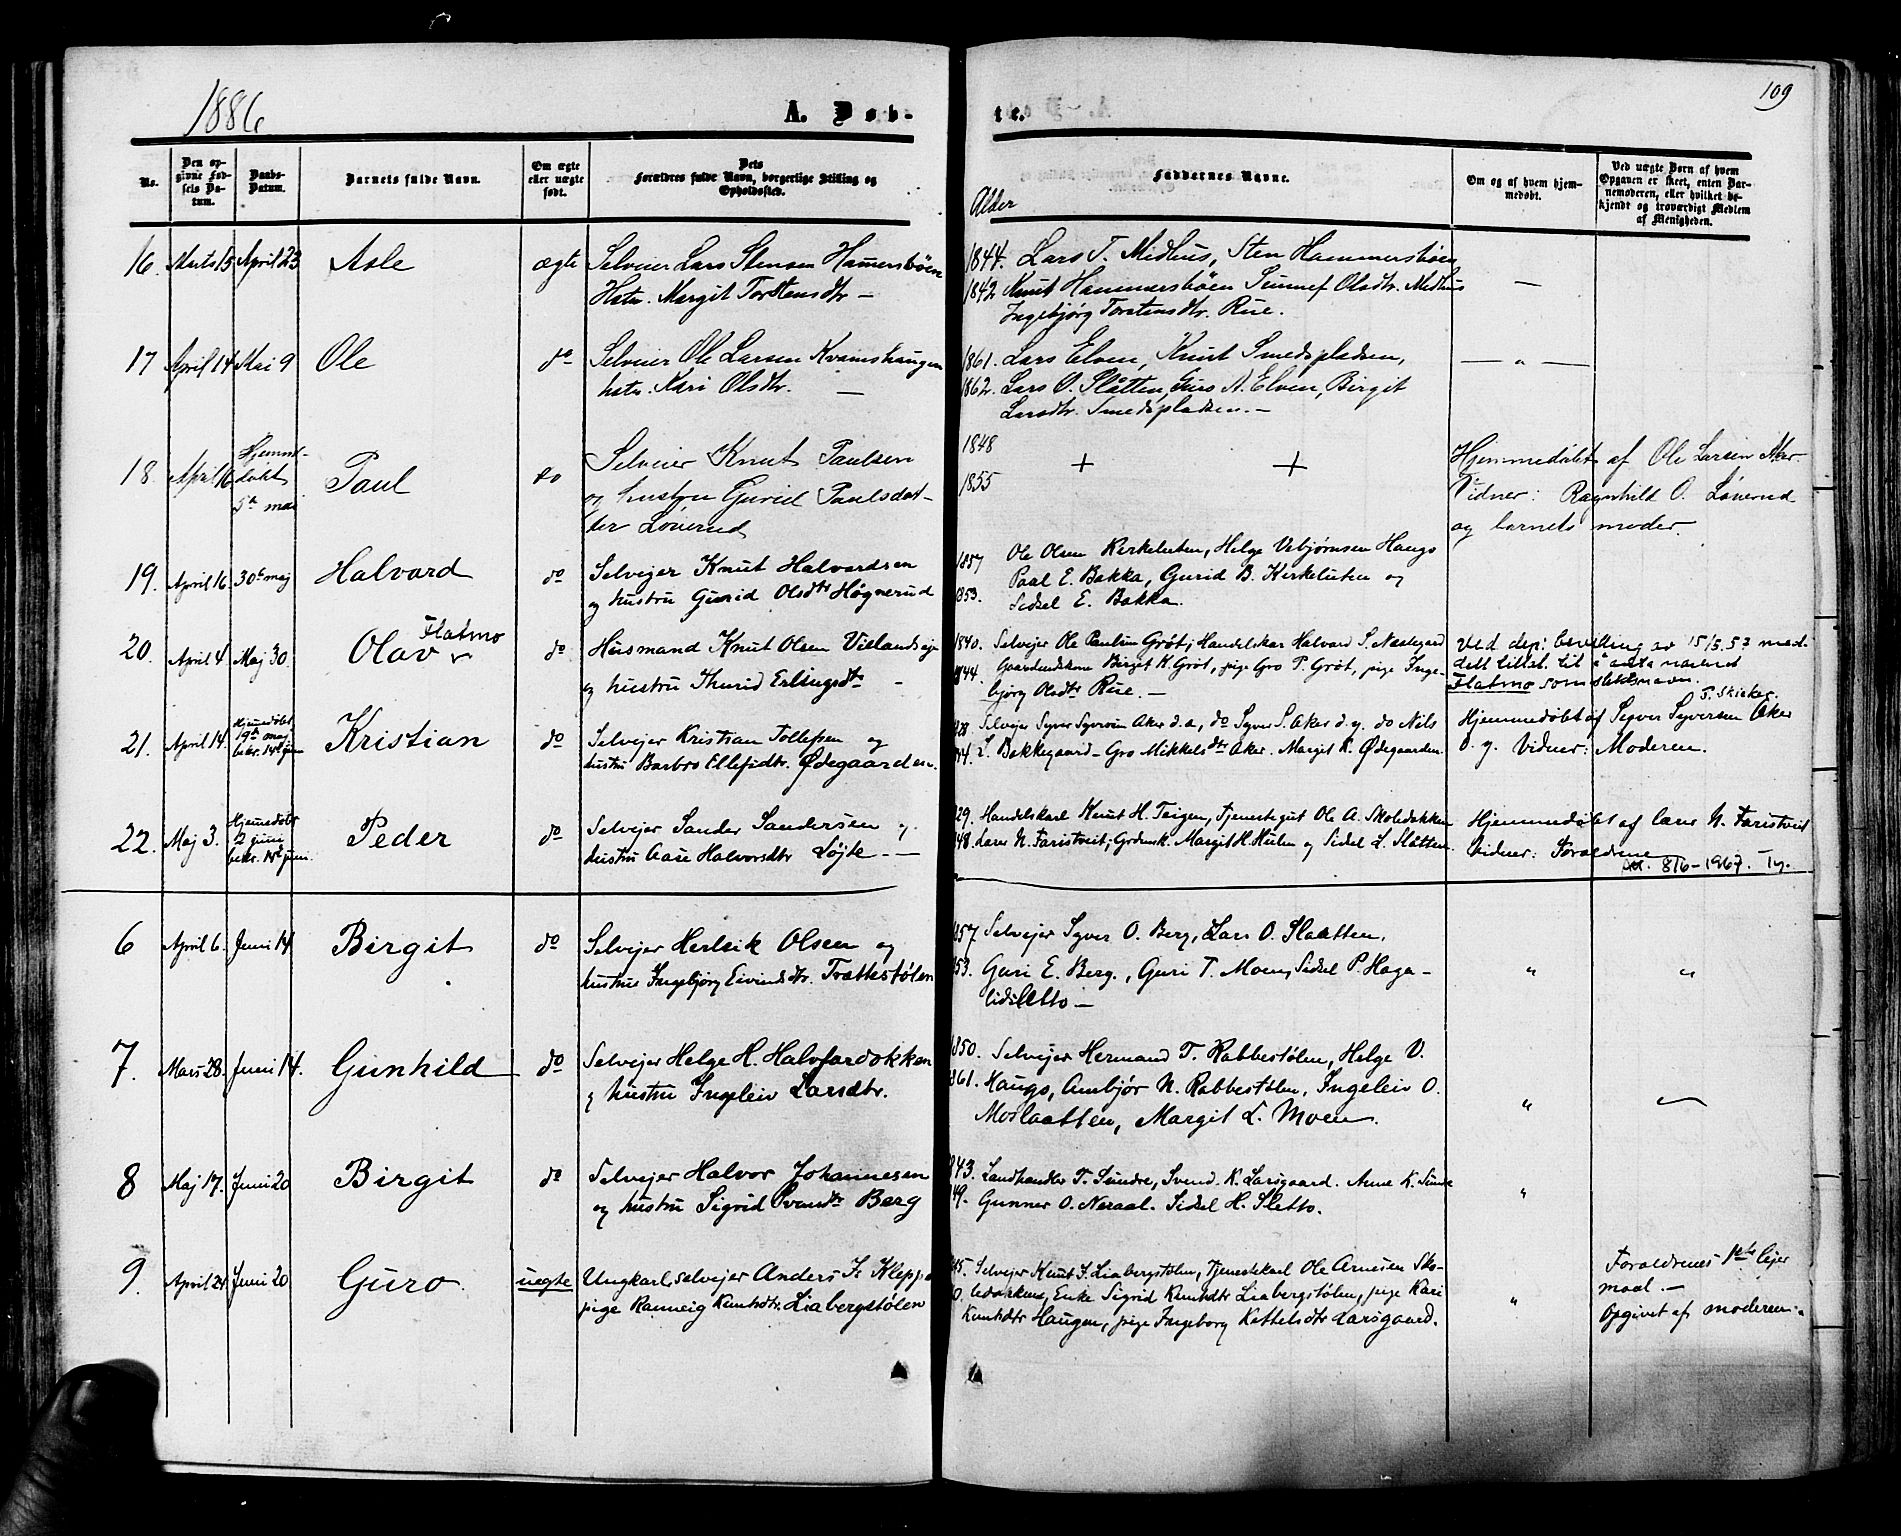 1886
A. Døb-
te.
109
No.
Den op-
givne Fød-
sels Da-
tum.
Daabs-
Datum.
Barnets fulde Navn.
Om ægte
eller uægte
født.
Dets
Forældres fulde Navn, borgerlige Stilling og
Opholdssted.
Alder
Faddernes Navne.
Om og af hvem hjem-
medøbt.
Ved uægte Børn af hvem
Opgaven er skeet, enten Bar-
nemoderen, eller hvilket be-
kjendt og troværdigt Medlem
af Menigheden.
16. Marts 15 April 23 Asle ægte
Selveier Lars Stensen Hamersbøen
Hstr. Margit Torstensdtr —
1844. Lars T. Midhus, Sten Hammersbøen
1842 Knut Hammersbøen Sunnef Olsdtr. Midhus
Ingebjørg Torstensdtr. Rue.
—
17 April 14 Mai 9 Ole do
Selveier Ole Larsen Kvamshaugen
hstr. Kari Olsdtr. —
1861. Lars Elven, Knut Smedspladsen,
1862. Lars O. Slåtten, Guro A. Elven, Birgit
Larsdtr. Smedspladsen. —
— „ —
18. April 16 Hjemme-
døbt
5te mai
Paul do
Selveier Knut Paulsen
og hustru Gurid Paulsdat-
ter Løverud
1848
1855
+ +
Hjemmedøbt af Ole Larsen Aker
Vidner: Ragnhild O. Løverud
og barnets moder.
19. April 16. 30te maj Halvard do
Selvejer Knut Halvardsen
og hustru Gurid Olsdtr Høgnerud
1857
1853.
Ole Olsen Kirkeluten, Helge Vebjørnsen Haugs
Paal E. Bakka, Gurid B. Kirkeluten og
Sidsel E. Bakka.
20. April 4. Maj 30. Olav Flatmo do
Husmand Knut Olsen Viellandseje
og hustru Thurid Erlingsdtr —
1840. Selvejer Ole Paulsen Grøt, Handelskar Halvard S. Næsegard
1844. Gaardmdskone Birget K. Grøt, pige Gro P. Grøt, pige Inge-
björg Olsdtr Rue. —
Ved dep: bevilling av 15/5.53 med-
delt tillat. til å anta navnet
Flatmo som slektsnavn.
T. Skirker.
21. April 14. Hjemmedøbt
19de maj
bekr. 14de juni
Kristian do
Selvejer Kristian Tollefsen og
hustru Barbro Ellefsdtr. Ødegaarden.
Selvejer Syver Syversen Aker d.æ, do Syver S. Aker d.y. do Nils
L. Bakkegaard — Gro Mikkelsdtr Aker. Margit K. Ødegaarden.
Hjemmedøbt af Syver Syversen Aker
d. y. Vidner: Moderen.
22. Maj 3. Hjemedøbt
2 juni
bekr. 14de juni.
Peder do
Selvejer Sander Sandersen og
hustru Aase Halvorsdtr Løjte. —
29. Handelskarl Knut H. Teigen, Tjenestegut Ole A. Skoledokken
48. Lærer N. Faristveit; Grdmsk. Margit H. Hulen og Sidsel L. Slåtten.
Hjemmedøbt af lærer N. Faristveit
Vidner: Forældrene
8/6 – 1967.
6 April 6. Juni 14. Birgit do
Selvejer Herleik Olsen og
hustru Ingebjörg Eivindsdtr. Trættestølen
857. Selvejer Syver O. Berg, Lars O. Slaatten.
53. Guri E. Berg., Guri T. Moen, Sidsel P. Haga-
lidsletto —
„ „
7. Mars 28. Juni 14. Gunhild do
Selvejer Helge H. Halvfardokken
og hustru Ingeleiv Larsdtr.
850. Selvejer Hermand T. Rabbestølen, Helge V.
861. Haugs, Ambjør N. Rabbestølen, Ingeleiv O.
Moslaatten, Margit L. Moen.
„
8 Maj 17. Juni 20 Birgit do
Selvejer Halvor Johannesen
og hustru Sigrid Svendsdtr Berg
843. Landhandler T. Sundre, Svend K. Larsgaard. Anne K. Sundre
49. Gunner O. Neraal. Sidsel H. Sletto.
„
9. April 24 Juni 20 Guro. uegte
Ungkarl, selvejer Anders K. Kleppo
pige Ranneig Knutsdtr. Liabergstølen
45. Selvejer Knut K. Liabergstølen, Tjenestekarl Ole Arnesen Sko-
ledokken, Enke Sigrid Knutsdtr Liabergstølen, pige Kari
Knutsdtr Haugen, pige Ingeborg Kittelsdtr Larsgaard.
„
Forældrenes 1ste lejer
maal. —
Opgivet af moderen.